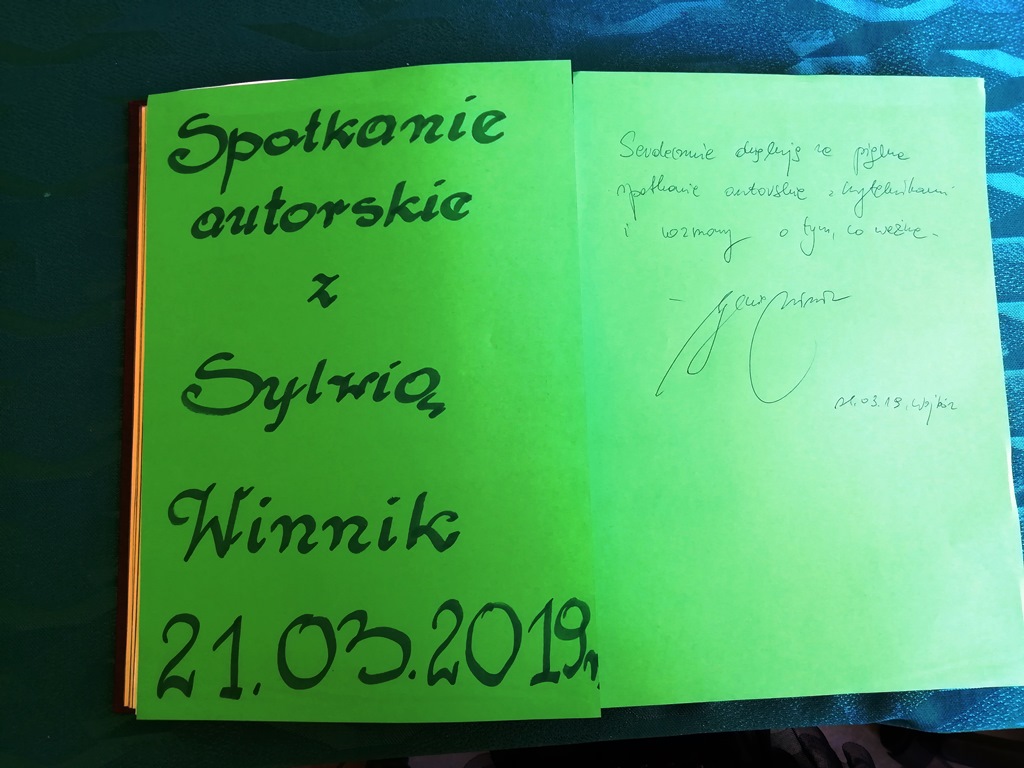 Spotkanie
autorskie
z
Sylwią
Winnik
21.03.2019r.
Serdecznie dziękuję za piękne
spotkanie autorskie z czytelnikami
i rozmowy o tym, co ważne.
21.03.19,